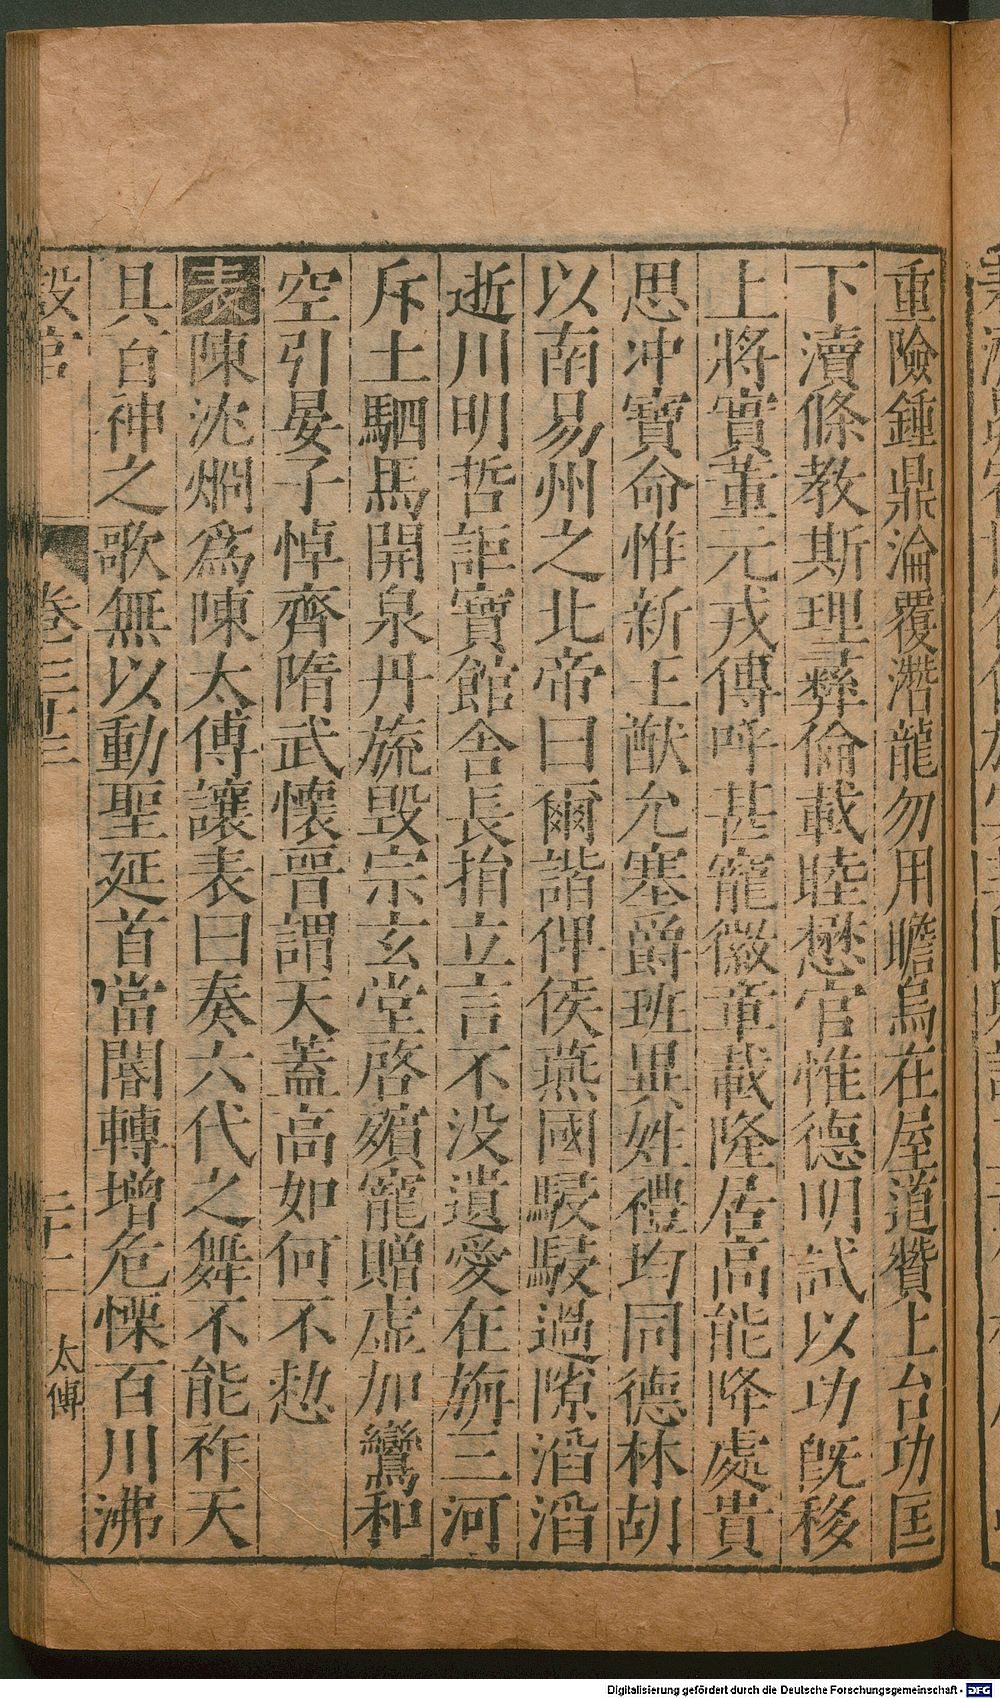 重險鍾鼎淪覆濳龍勿用瞻烏在屋道贊上台功匡
下瀆條教斯理彛倫載睦懋官惟德明試以功旣移
上將實董元戎傅呼甚寵徽章載隆居高能降處貴
思冲寶命惟新王猷允塞爵班異姓禮均同德林胡
以南易州之北帝曰爾諧俾侯燕國駸駸過隙滔滔
逝川明哲詎實館舎長捐立言不没遺愛在旃三河
斥土駟馬開泉丹旐毁宗玄堂啓殯寵贈虛加鸞和
空引晏子悼齊隋武懷晉謂天蓋高如何不憗
表陳沈烱爲陳太傅讓表曰奏六代之舞不能祚天
具百神之歌無以動聖延首當闇轉增危慄百川沸
設官 卷三十三 二十一 太傅
Digitalisierung gefördert durch die Deutsche Forschungsgemeinschaft - DFG